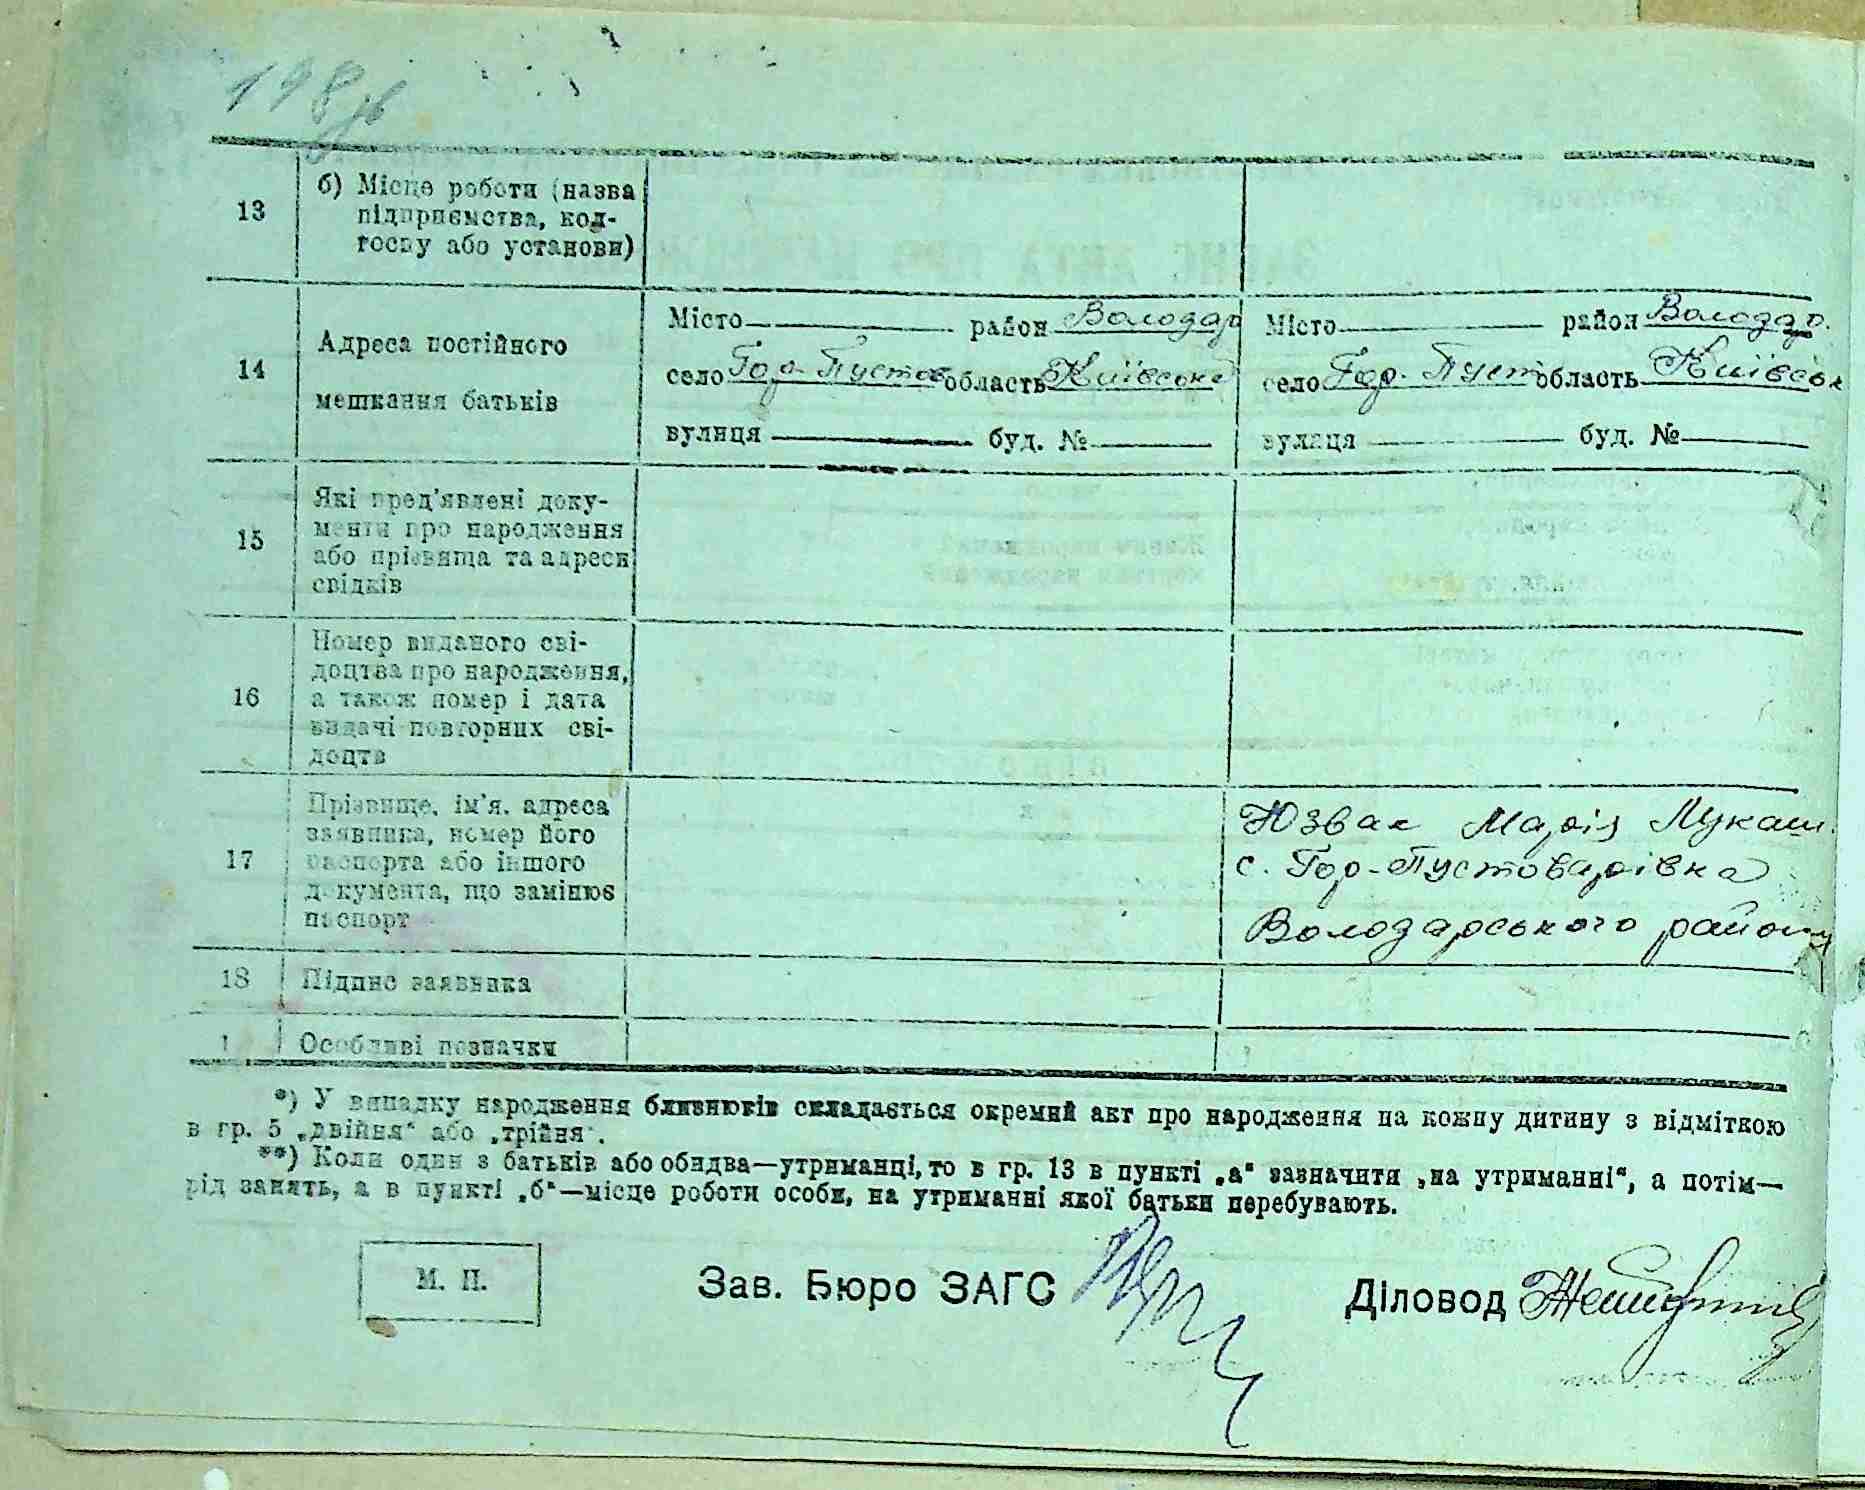 198зв
13 б) Місце роботи (назва
підприємства, кол-
госпу або установи)
14 Адреса постійного
мешкання батьків
Місто район Володар
село Гор-Пустов область Київська
вулиця буд. №
Місто район Володар.
село Гор. Пуст область Київськ
вулиця буд. №
15 Які пред'явлені доку-
менти про народження
або прізвища та адреси
свідків
16 Номер виданого сві-
доцтва про народження,
а також номер і дата
видачі повторних сві-
доцтв
17 Прізвище, ім'я, адреса
заявника, номер його
паспорта або іншого
документа, що замінює
паспорт
Юзвак Марія Лукаш.
с. Гор-Пустоварівка
Володарського району
18 Підпис заявника
1 Особливі позначки
*) У випадку народження близнюків складається окремий акт про народження на кожну дитину з відміткою
в гр. 5 „двійня“ або „трійня“.
**) Коли один з батьків або обидва—утриманці, то в гр. 13 в пункті „а“ зазначити „на утриманні“, а потім—
рід занять, а в пункті „б“—місце роботи особи, на утриманні якої батьки перебувають.
М. П.
Зав. Бюро ЗАГС
Діловод